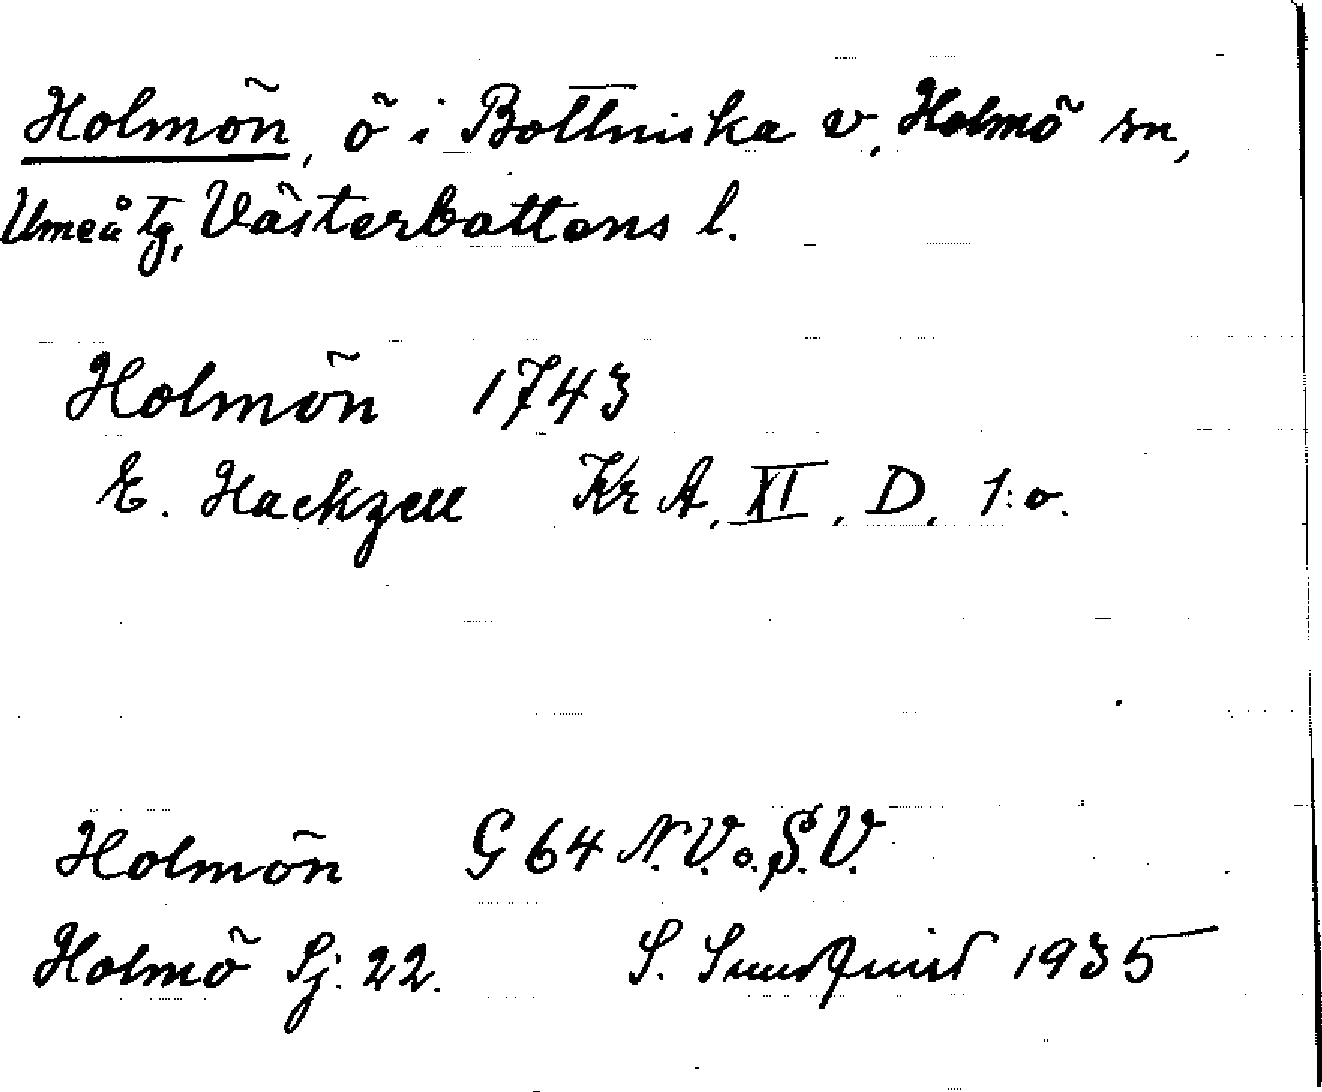 Holmön, ö i Bottniska v, Holmö sn,
Umeå tg, Västerbottens l.
Holmön 1743
E. Hackzell Kr A, XI, D, 1:o.
Holmön G 64 N.V. o. S.V.
Holmö Sj. 22. S. Sundquist 1935